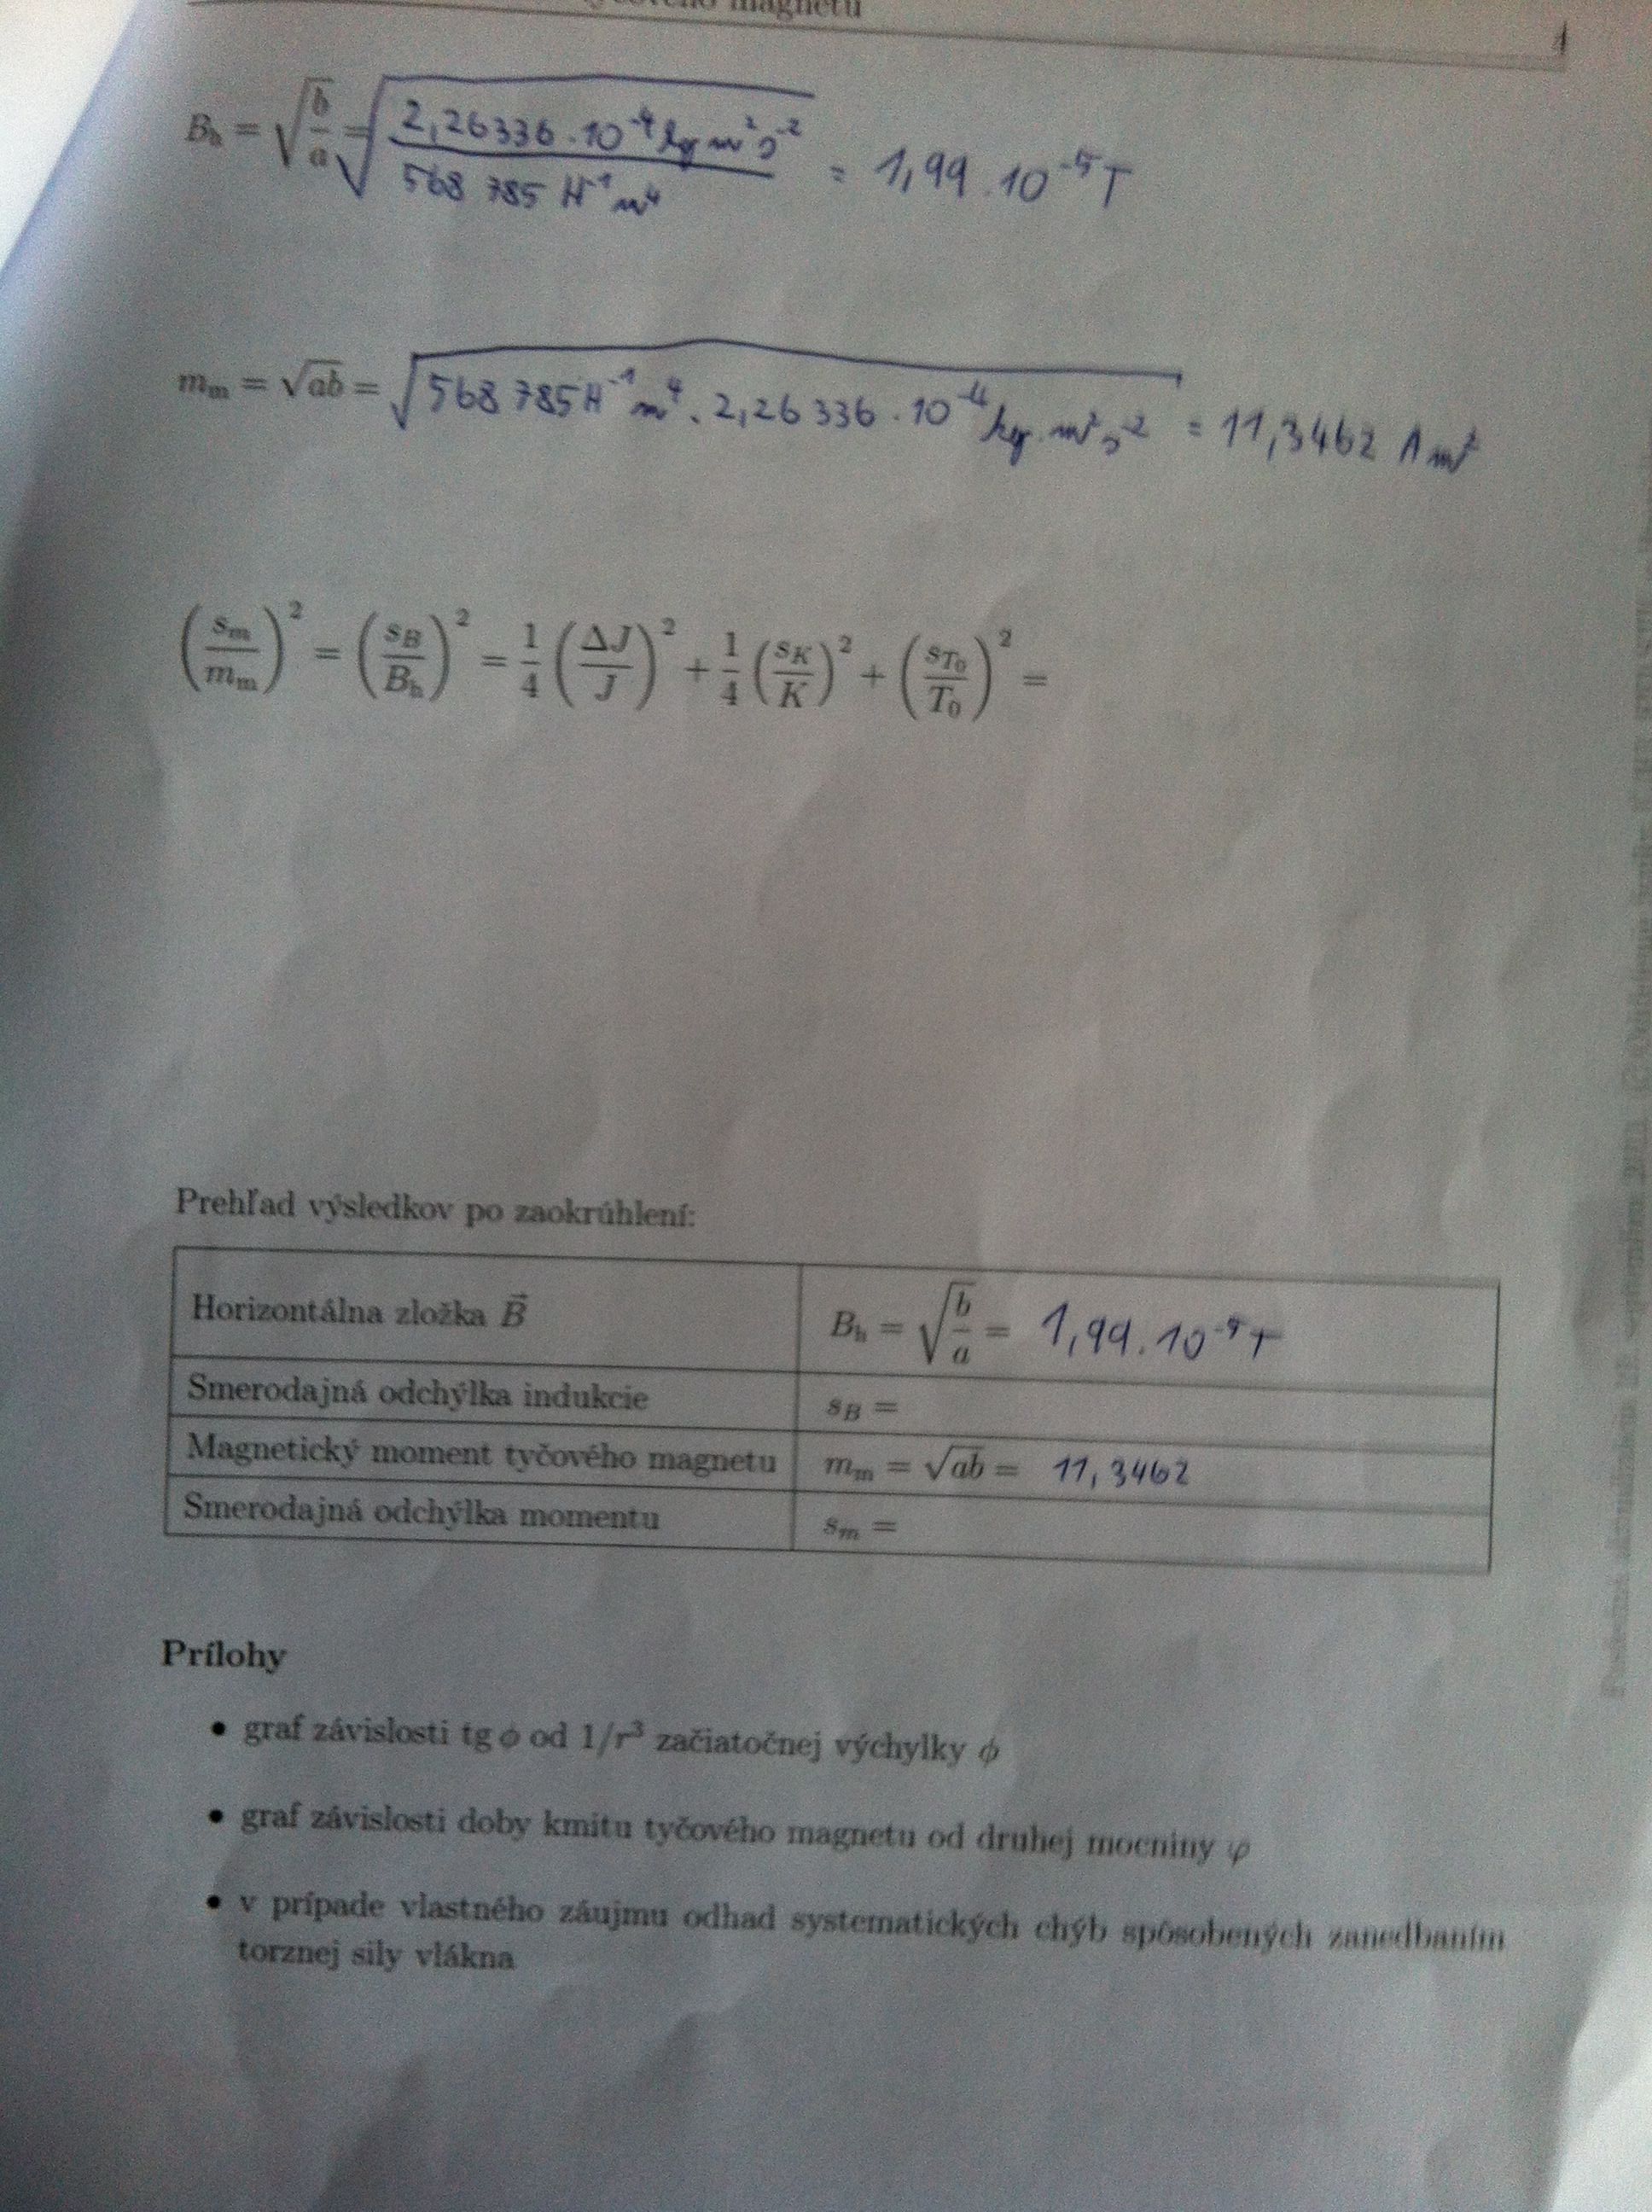 magnetu
1
B_h = √(b/a) = √(2,26336 · 10^-4 kg m^2 s^-2 / 568 785 H^-1 m^4) = 1,99 · 10^-5 T
m_m = √ab = √(568 785 H^-1 m^4 · 2,26336 · 10^-4 kg · m^2 s^-2) = 11,3462 A m^2
(s_m/m_m)^2 = (s_B/B_h)^2 = 1/4 (ΔJ/J)^2 + 1/4 (s_K/K)^2 + (s_T0/T_0)^2 =
Prehľad výsledkov po zaokrúhlení:
Horizontálna zložka B⃗ B_h = √(b/a) = 1,99 · 10^-5 T
Smerodajná odchýlka indukcie s_B =
Magnetický moment tyčového magnetu m_m = √ab = 11,3462
Smerodajná odchýlka momentu s_m =
Prílohy
• graf závislosti tg ϕ od 1/r^3 začiatočnej výchylky ϕ
• graf závislosti doby kmitu tyčového magnetu od druhej mocniny φ
• v prípade vlastného záujmu odhad systematických chýb spôsobených zanedbaním
torznej sily vlákna